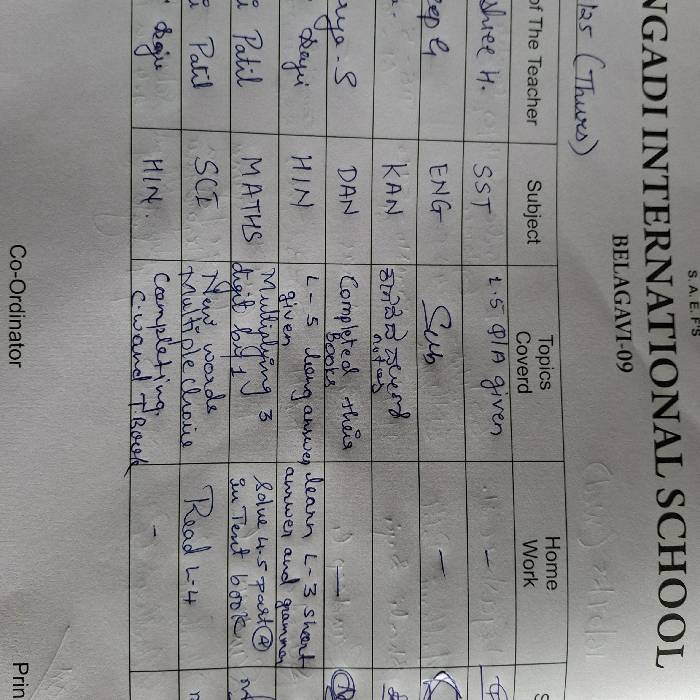 S.A.E.F'S
NGADI INTERNATIONAL SCHOOL
BELAGAVI-09
/25 (Thurs)
of The Teacher Subject Topics Coverd Home Work S
shree H. SST L.5 Q/A given -
eep G ENG Sub -
KAN
notes
rya. S DAN Completed their -
Books
Dayi HIN L-5 long answer learn L-3 short
given answer and grammer
i Patil MATHS Multiplying 3 Solve 4.5 part (A)
digit by 1 in Text book
i Patil SCI New words Read L-4
Multiple choice
Dayi HIN. Completing -
C.W and T.Book
Co-Ordinator Prin